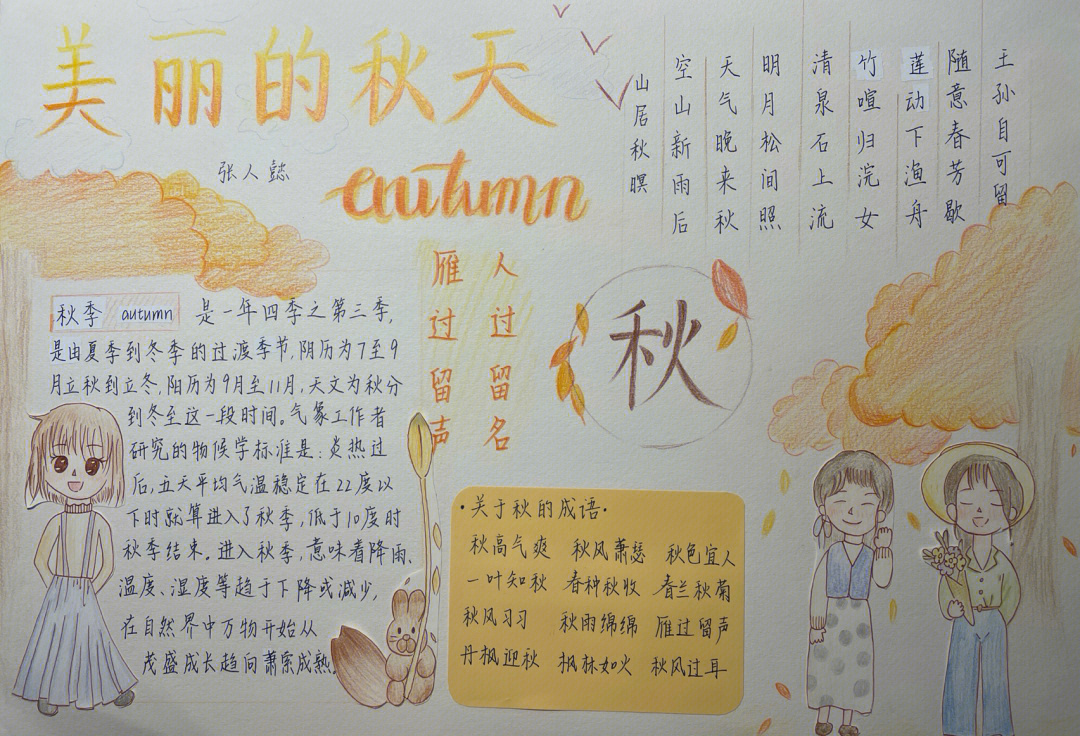 美丽的秋天
张人懿
autumn
山居秋暝
空山新雨后
天气晚来秋
明月松间照
清泉石上流
竹喧归浣女
莲动下渔舟
随意春芳歇
王孙自可留
雁过留声
人过留名
秋
秋季 autumn 是一年四季之第三季,
是由夏季到冬季的过渡季节,阴历为7至9
月立秋到立冬,阳历为9月至11月,天文为秋分
到冬至这一段时间。气象工作者
研究的物候学标准是:炎热过
后,五天平均气温稳定在22度以
下时就算进入了秋季,低于10度时
秋季结束。进入秋季,意味着降雨、
温度、湿度等趋于下降或减少,
在自然界中万物开始从
茂盛成长趋向萧索成熟。
·关于秋的成语·
秋高气爽 秋风萧瑟 秋色宜人
一叶知秋 春种秋收 春兰秋菊
秋风习习 秋雨绵绵 雁过留声
丹枫迎秋 枫林如火 秋风过耳